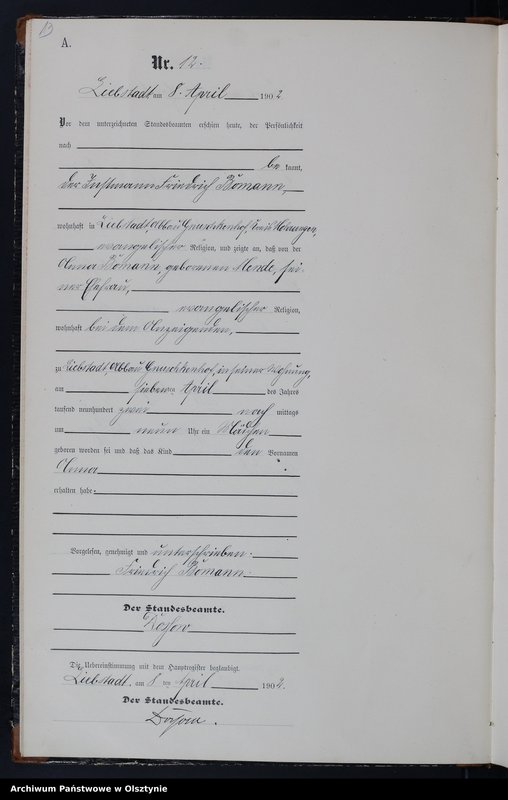 13
A.
Nr. 12.
Liebstadt am 8. April 1902.
Vor dem unterzeichneten Standesbeamten erschien heute, der Persönlichkeit
nach
be kannt,
der Instmann Friedrich Bömann,
wohnhaft in Liebstadt, Abbau Kreis Mohrungen,
evangelischer Religion, und zeigte an, daß von der
Anna Bömann, geborenen sei-
ner Ehefrau,
evangelischer Religion,
wohnhaft bei dem Anzeigenden,
zu Liebstadt, Abbau in seiner Wohnung,
am sieben ten April des Jahres
tausend neunhundert zwei nach mittags
um neun Uhr ein Mädchen
geboren worden sei und daß das Kind den Vornamen
Anna
erhalten habe.
Vorgelesen, genehmigt und unterschrieben.
Friedrich Bömann.
Der Standesbeamte.
Die Uebereinstimmung mit dem Hauptregister beglaubigt.
Liebstadt, am 8 ten April 1902.
Der Standesbeamte.
Archiwum Państwowe w Olsztynie